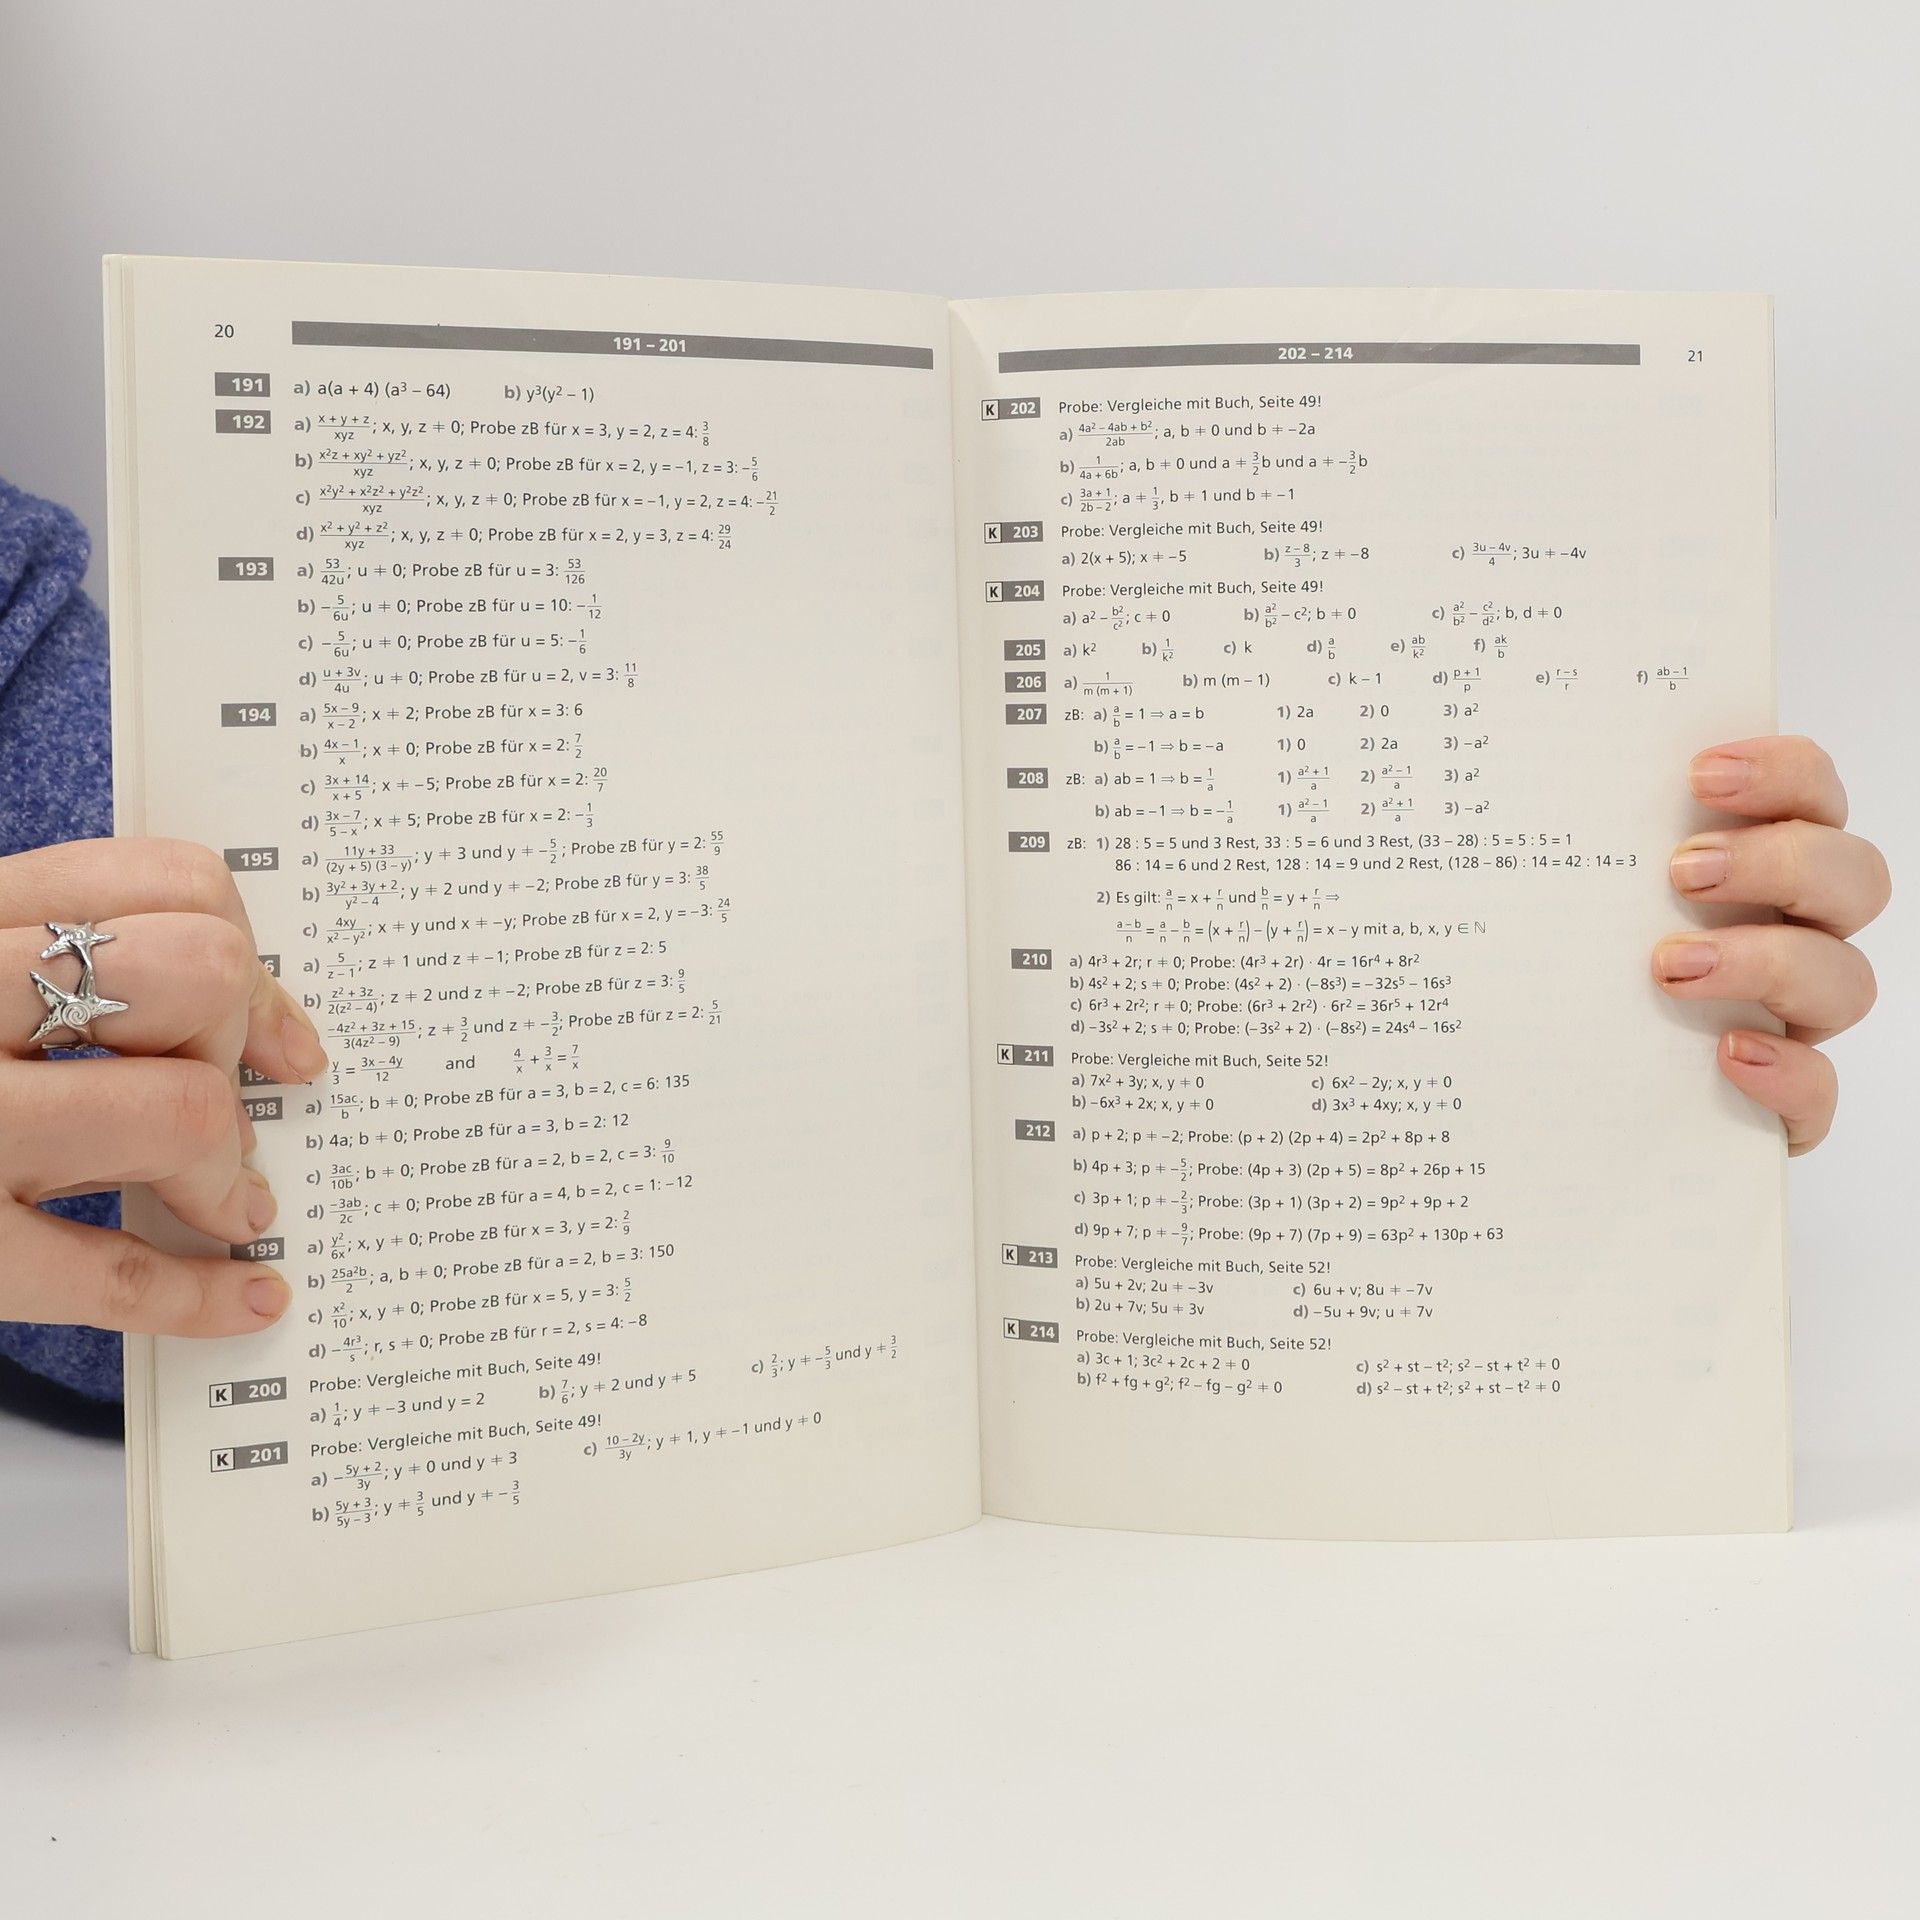 20
191 – 201
191 a) a(a + 4) (a³ – 64) b) y³(y² – 1)
192 a) (x + y + z)/(xyz); x, y, z ≠ 0; Probe zB für x = 3, y = 2, z = 4: 3/8
b) (x²z + xy² + yz²)/(xyz); x, y, z ≠ 0; Probe zB für x = 2, y = –1, z = 3: –5/6
c) (x²y² + x²z² + y²z²)/(xyz); x, y, z ≠ 0; Probe zB für x = –1, y = 2, z = 4: –21/2
d) (x² + y² + z²)/(xyz); x, y, z ≠ 0; Probe zB für x = 2, y = 3, z = 4: 29/24
193 a) 53/(42u); u ≠ 0; Probe zB für u = 3: 53/126
b) –5/(6u); u ≠ 0; Probe zB für u = 10: –1/12
c) –5/(6u); u ≠ 0; Probe zB für u = 5: –1/6
d) (u + 3v)/(4u); u ≠ 0; Probe zB für u = 2, v = 3: 11/8
194 a) (5x – 9)/(x – 2); x ≠ 2; Probe zB für x = 3: 6
b) (4x – 1)/x; x ≠ 0; Probe zB für x = 2: 7/2
c) (3x + 14)/(x + 5); x ≠ –5; Probe zB für x = 2: 20/7
d) (3x – 7)/(5 – x); x ≠ 5; Probe zB für x = 2: –1/3
195 a) (11y + 33)/((2y + 5) (3 – y)); y ≠ 3 und y ≠ –5/2; Probe zB für y = 2: 55/9
b) (3y² + 3y + 2)/(y² – 4); y ≠ 2 und y ≠ –2; Probe zB für y = 3: 38/5
c) (4xy)/(x² – y²); x ≠ y und x ≠ –y; Probe zB für x = 2, y = –3: 24/5
6 a) 5/(z – 1); z ≠ 1 und z ≠ –1; Probe zB für z = 2: 5
b) (z² + 3z)/(2(z² – 4)); z ≠ 2 und z ≠ –2; Probe zB für z = 3: 9/5
(–4z² + 3z + 15)/(3(4z² – 9)); z ≠ 3/2 und z ≠ –3/2; Probe zB für z = 2: 5/21
19 y/3 = (3x – 4y)/12 and 4/x + 3/x = 7/x
198 a) 15ac/b; b ≠ 0; Probe zB für a = 3, b = 2, c = 6: 135
b) 4a; b ≠ 0; Probe zB für a = 3, b = 2: 12
c) 3ac/(10b); b ≠ 0; Probe zB für a = 2, b = 2, c = 3: 9/10
d) –3ab/(2c); c ≠ 0; Probe zB für a = 4, b = 2, c = 1: –12
199 a) y²/(6x); x, y ≠ 0; Probe zB für x = 3, y = 2: 2/9
b) 25a²b/2; a, b ≠ 0; Probe zB für a = 2, b = 3: 150
c) x²/10; x, y ≠ 0; Probe zB für x = 5, y = 3: 5/2
d) –4r³/s; r, s ≠ 0; Probe zB für r = 2, s = 4: –8
K 200 Probe: Vergleiche mit Buch, Seite 49!
a) 1/4; y ≠ –3 und y = 2 b) 7/6; y ≠ 2 und y ≠ 5 c) 2/3; y ≠ –5/3 und y ≠ 3/2
K 201 Probe: Vergleiche mit Buch, Seite 49!
a) –(5y + 2)/(3y); y ≠ 0 und y ≠ 3 c) (10 – 2y)/(3y); y ≠ 1, y ≠ –1 und y ≠ 0
b) (5y + 3)/(5y – 3); y ≠ 3/5 und y ≠ –3/5
202 – 214
21
K 202 Probe: Vergleiche mit Buch, Seite 49!
a) (4a² – 4ab + b²)/(2ab); a, b ≠ 0 und b ≠ –2a
b) 1/(4a + 6b); a, b ≠ 0 und a ≠ 3/2 b und a ≠ –3/2 b
c) (3a + 1)/(2b – 2); a ≠ 1/3, b ≠ 1 und b ≠ –1
K 203 Probe: Vergleiche mit Buch, Seite 49!
a) 2(x + 5); x ≠ –5 b) (z – 8)/3; z ≠ –8 c) (3u – 4v)/4; 3u ≠ –4v
K 204 Probe: Vergleiche mit Buch, Seite 49!
a) a² – b²/c²; c ≠ 0 b) a²/b² – c²; b ≠ 0 c) a²/b² – c²/d²; b, d ≠ 0
205 a) k² b) 1/k² c) k d) a/b e) ab/k² f) ak/b
206 a) 1/(m (m + 1)) b) m (m – 1) c) k – 1 d) (p + 1)/p e) (r – s)/r f) (ab – 1)/b
207 zB: a) a/b = 1 ⇒ a = b 1) 2a 2) 0 3) a²
b) a/b = –1 ⇒ b = –a 1) 0 2) 2a 3) –a²
208 zB: a) ab = 1 ⇒ b = 1/a 1) (a² + 1)/a 2) (a² – 1)/a 3) a²
b) ab = –1 ⇒ b = –1/a 1) (a² – 1)/a 2) (a² + 1)/a 3) –a²
209 zB: 1) 28 : 5 = 5 und 3 Rest, 33 : 5 = 6 und 3 Rest, (33 – 28) : 5 = 5 : 5 = 1
86 : 14 = 6 und 2 Rest, 128 : 14 = 9 und 2 Rest, (128 – 86) : 14 = 42 : 14 = 3
2) Es gilt: a/n = x + r/n und b/n = y + r/n ⇒
(a – b)/n = a/n – b/n = (x + r/n) – (y + r/n) = x – y mit a, b, x, y ∈ ℕ
210 a) 4r³ + 2r; r ≠ 0; Probe: (4r³ + 2r) · 4r = 16r⁴ + 8r²
b) 4s² + 2; s ≠ 0; Probe: (4s² + 2) · (–8s³) = –32s⁵ – 16s³
c) 6r³ + 2r²; r ≠ 0; Probe: (6r³ + 2r²) · 6r² = 36r⁵ + 12r⁴
d) –3s² + 2; s ≠ 0; Probe: (–3s² + 2) · (–8s²) = 24s⁴ – 16s²
K 211 Probe: Vergleiche mit Buch, Seite 52!
a) 7x² + 3y; x, y ≠ 0 c) 6x² – 2y; x, y ≠ 0
b) –6x³ + 2x; x, y ≠ 0 d) 3x³ + 4xy; x, y ≠ 0
212 a) p + 2; p ≠ –2; Probe: (p + 2) (2p + 4) = 2p² + 8p + 8
b) 4p + 3; p ≠ –5/2; Probe: (4p + 3) (2p + 5) = 8p² + 26p + 15
c) 3p + 1; p ≠ –2/3; Probe: (3p + 1) (3p + 2) = 9p² + 9p + 2
d) 9p + 7; p ≠ –9/7; Probe: (9p + 7) (7p + 9) = 63p² + 130p + 63
K 213 Probe: Vergleiche mit Buch, Seite 52!
a) 5u + 2v; 2u ≠ –3v c) 6u + v; 8u ≠ –7v
b) 2u + 7v; 5u ≠ 3v d) –5u + 9v; u ≠ 7v
K 214 Probe: Vergleiche mit Buch, Seite 52!
a) 3c + 1; 3c² + 2c + 2 ≠ 0 c) s² + st – t²; s² – st + t² ≠ 0
b) f² + fg + g²; f² – fg – g² ≠ 0 d) s² – st + t²; s² + st – t² ≠ 0